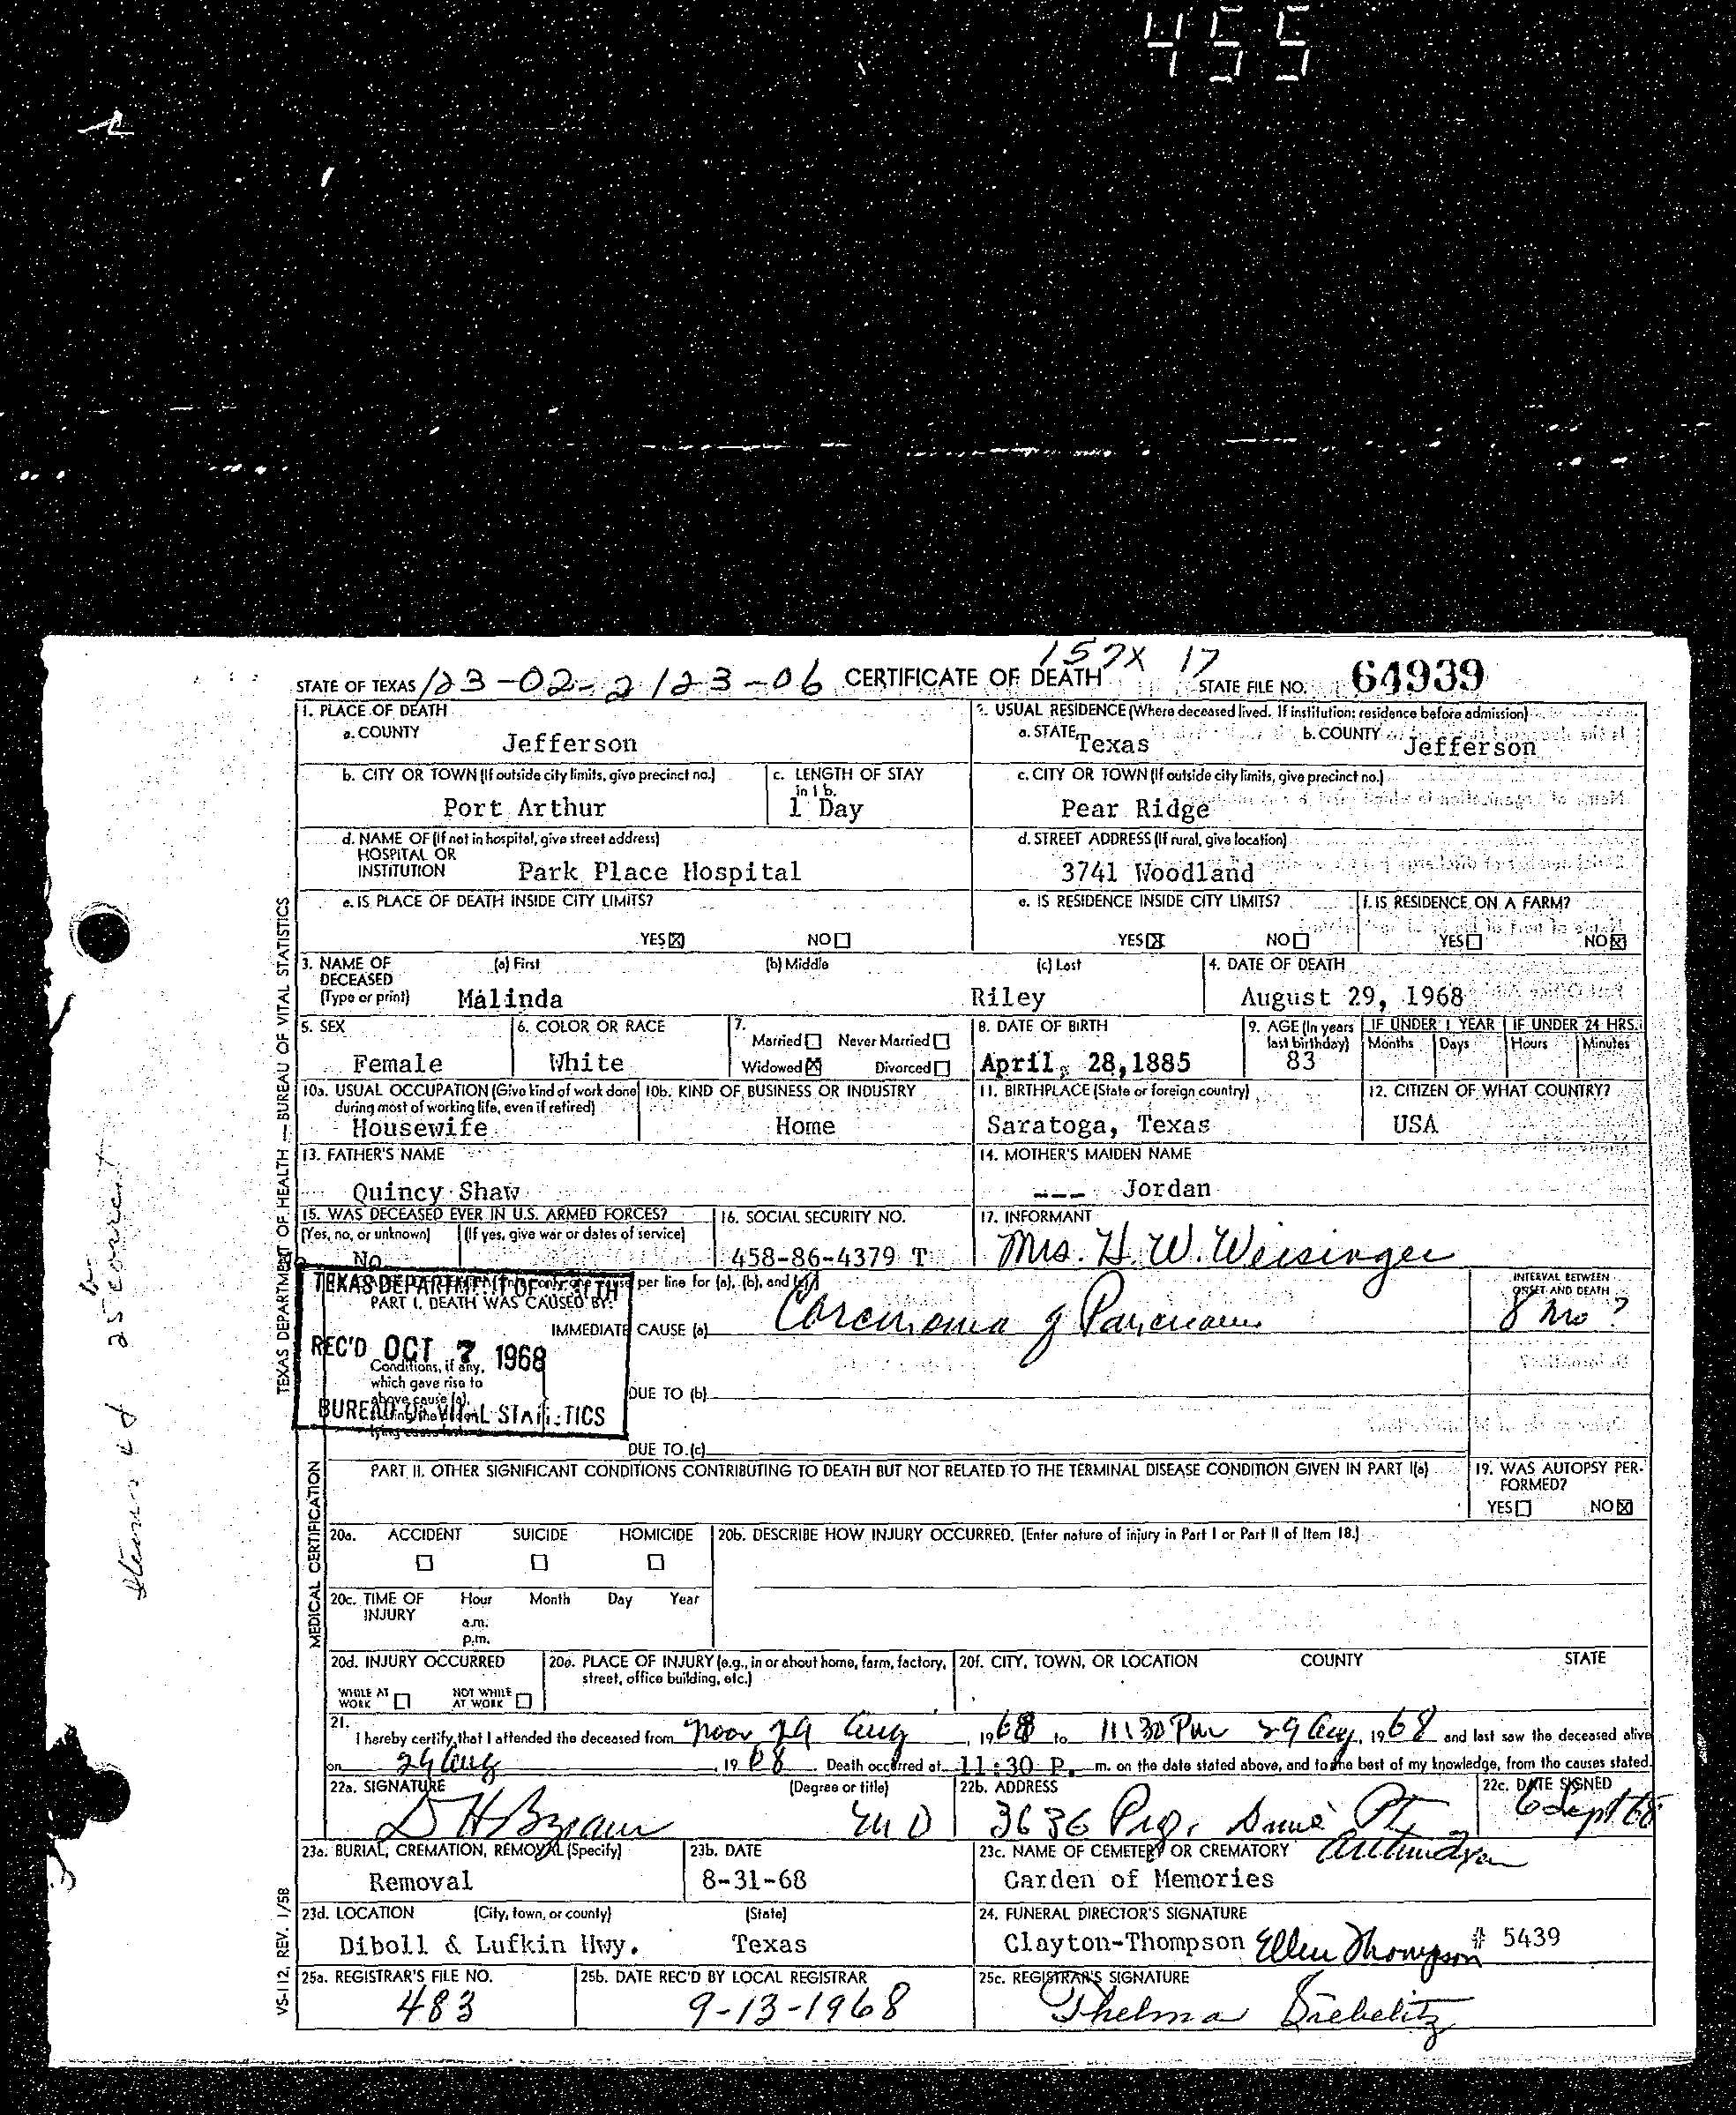 455
157X 17
STATE OF TEXAS 123-02-2 123-06 CERTIFICATE OF DEATH STATE FILE NO. 64939
1. PLACE OF DEATH
a. COUNTY
Jefferson
2. USUAL RESIDENCE (Where deceased lived. If institution: residence before admission)
a. STATE Texas b. COUNTY Jefferson
b. CITY OR TOWN (If outside city limits, give precinct no.)
Port Arthur
c. LENGTH OF STAY
in 1 b.
1 Day
c. CITY OR TOWN (If outside city limits, give precinct no.)
Pear Ridge
d. NAME OF (If not in hospital, give street address)
HOSPITAL OR
INSTITUTION Park Place Hospital
d. STREET ADDRESS (If rural, give location)
3741 Woodland
e. IS PLACE OF DEATH INSIDE CITY LIMITS?
YES ☒ NO ☐
e. IS RESIDENCE INSIDE CITY LIMITS?
YES ☒ NO ☐
f. IS RESIDENCE ON A FARM?
YES ☐ NO ☒
3. NAME OF (a) First (b) Middle (c) Last
DECEASED
(Type or print) Malinda Riley
4. DATE OF DEATH
August 29, 1968
5. SEX
Female
6. COLOR OR RACE
White
7.
Married ☐ Never Married ☐
Widowed ☒ Divorced ☐
8. DATE OF BIRTH
April 28, 1885
9. AGE (In years
last birthday)
83
IF UNDER 1 YEAR IF UNDER 24 HRS.
Months Days Hours Minutes
10a. USUAL OCCUPATION (Give kind of work done
during most of working life, even if retired)
Housewife
10b. KIND OF BUSINESS OR INDUSTRY
Home
11. BIRTHPLACE (State or foreign country)
Saratoga, Texas
12. CITIZEN OF WHAT COUNTRY?
USA
13. FATHER'S NAME
Quincy Shaw
14. MOTHER'S MAIDEN NAME
--- Jordan
15. WAS DECEASED EVER IN U.S. ARMED FORCES?
(Yes, no, or unknown) (If yes, give war or dates of service)
No
16. SOCIAL SECURITY NO.
458-86-4379 T
17. INFORMANT
Mrs. H. W. Weisinger
TEXAS DEPARTMENT OF HEALTH
REC'D OCT 7 1968
BUREAU OF VITAL STATISTICS
per line for (a), (b), and (c)
PART I. DEATH WAS CAUSED BY:
IMMEDIATE CAUSE (a) Carcinoma of Pancreas
INTERVAL BETWEEN
ONSET AND DEATH
8 mo ?
Conditions, if any,
which gave rise to
above cause (a),
DUE TO (b)
DUE TO (c)
PART II. OTHER SIGNIFICANT CONDITIONS CONTRIBUTING TO DEATH BUT NOT RELATED TO THE TERMINAL DISEASE CONDITION GIVEN IN PART I(a)
19. WAS AUTOPSY PER-
FORMED?
YES ☐ NO ☒
20a. ACCIDENT SUICIDE HOMICIDE
☐ ☐ ☐
20b. DESCRIBE HOW INJURY OCCURRED. (Enter nature of injury in Part I or Part II of Item 18.)
20c. TIME OF Hour Month Day Year
INJURY
a.m.
p.m.
20d. INJURY OCCURRED
WHILE AT WORK ☐ NOT WHILE AT WORK ☐
20e. PLACE OF INJURY (e.g., in or about home, farm, factory,
street, office building, etc.)
20f. CITY, TOWN, OR LOCATION COUNTY STATE
21.
I hereby certify that I attended the deceased from noon 29 Aug, 1968 to 11:30 Pm 29 Aug, 1968 and last saw the deceased alive
on 29 Aug, 1968. Death occurred at 11:30 P. m. on the date stated above, and to the best of my knowledge, from the causes stated.
22a. SIGNATURE (Degree or title)
D H Byram MD
22b. ADDRESS
3636 Proc. Drive Pt. Arthur
22c. DATE SIGNED
6 Sept 68
23a. BURIAL, CREMATION, REMOVAL (Specify)
Removal
23b. DATE
8-31-68
23c. NAME OF CEMETERY OR CREMATORY
Garden of Memories
23d. LOCATION (City, town, or county) (State)
Diboll & Lufkin Hwy. Texas
24. FUNERAL DIRECTOR'S SIGNATURE
Clayton-Thompson Ellen Thompson # 5439
25a. REGISTRAR'S FILE NO.
483
25b. DATE REC'D BY LOCAL REGISTRAR
9-13-1968
25c. REGISTRAR'S SIGNATURE
Thelma
TEXAS DEPARTMENT OF HEALTH — BUREAU OF VITAL STATISTICS
MEDICAL CERTIFICATION
VS-112, REV. 1/58